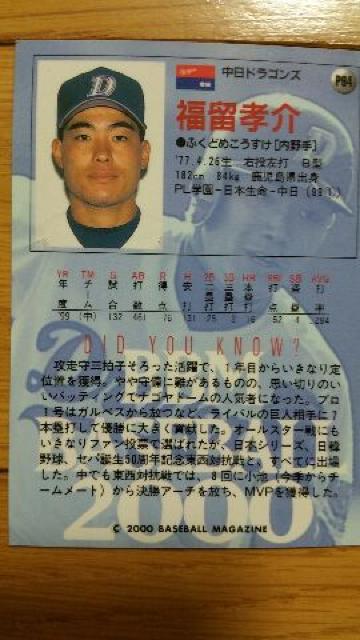 P64
中日ドラゴンズ
福留孝介
●ふくどめこうすけ [内野手]
'77.4.26生 右投左打 B型
182cm 84kg 鹿児島県出身
PL学園-日本生命-中日
YR TM G AB R H 2B 3B HR RBI SB AVG
年度 チーム 試合 打数 得点 安打 二塁打 三塁打 本塁打 打点 盗塁 打率
'99 (中) 132 461 76 131 25 3 16 52 4 .284
DID YOU KNOW?
攻走守三拍子そろった活躍で、1年目からいきなり定
位置を獲得。やや守備に難があるものの、思い切りのい
いバッティングでナゴヤドームの人気者になった。プロ
1号はガルベスから放つなど、ライバルの巨人相手に7
本塁打して優勝に大きく貢献した。オールスター戦にも
いきなりファン投票で選ばれたが、日本シリーズ、日韓
野球、セパ誕生50周年記念東西対抗戦と、すべてに出場し
た。中でも東西対抗戦では、8回に小池(今季からチ
ームメート)から決勝アーチを放ち、MVPを獲得した。
2000
© 2000 BASEBALL MAGAZINE